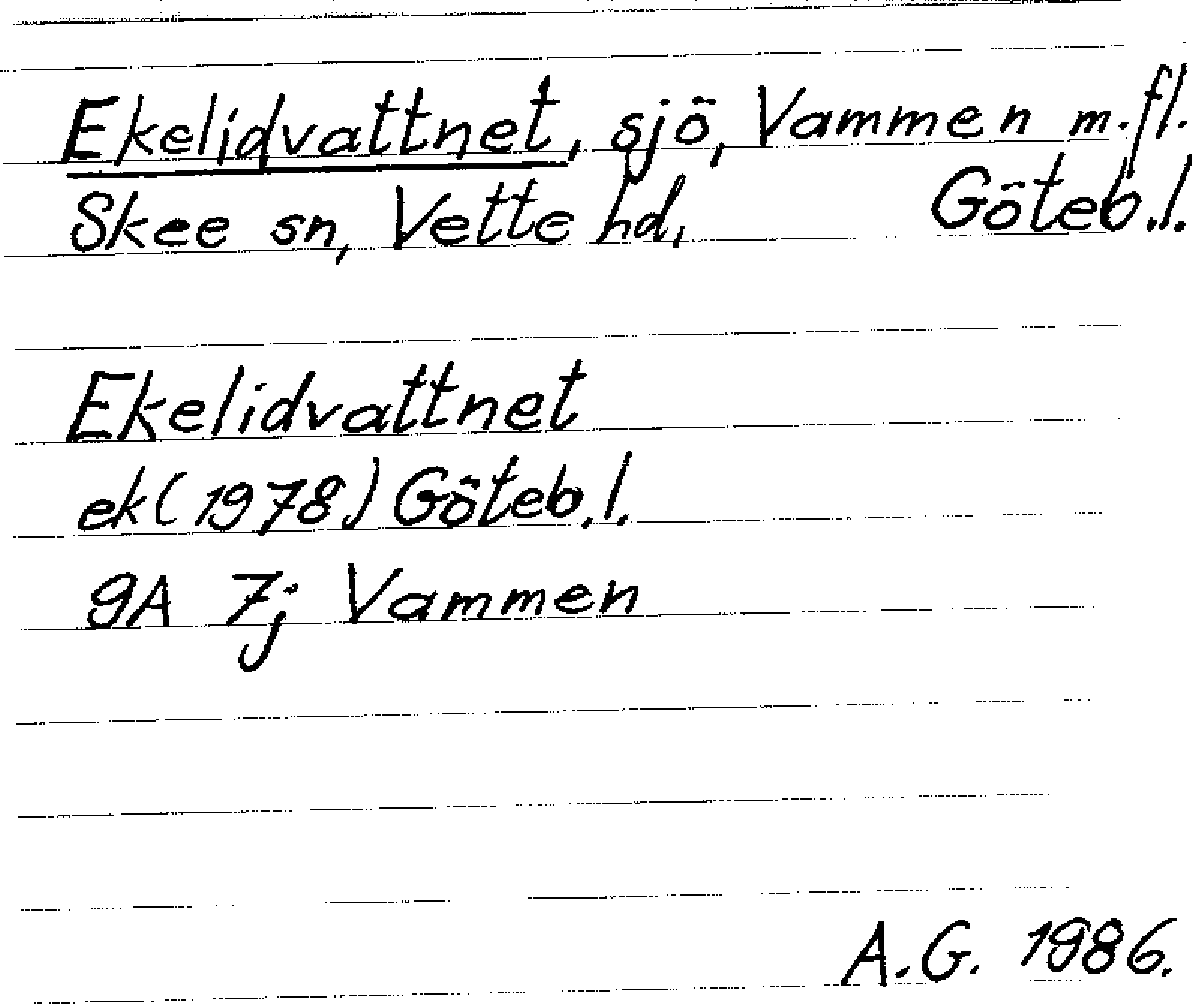 Ekelidvattnet, sjö, Vammen m.fl.
Skee sn, Vette hd, Göteb.l.
Ekelidvattnet
ek (1978) Göteb.l.
9A 7j Vammen
A.G. 1986.